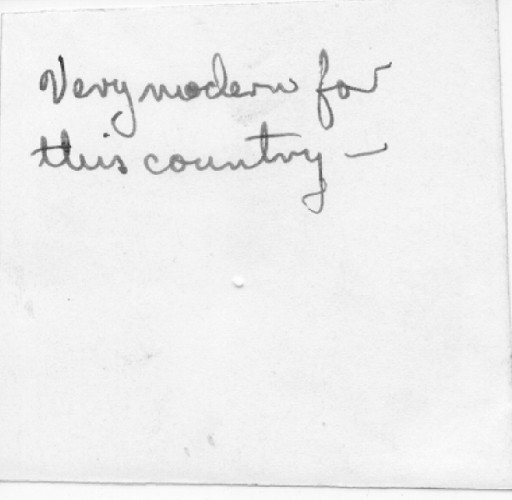 Very modern for
this country —